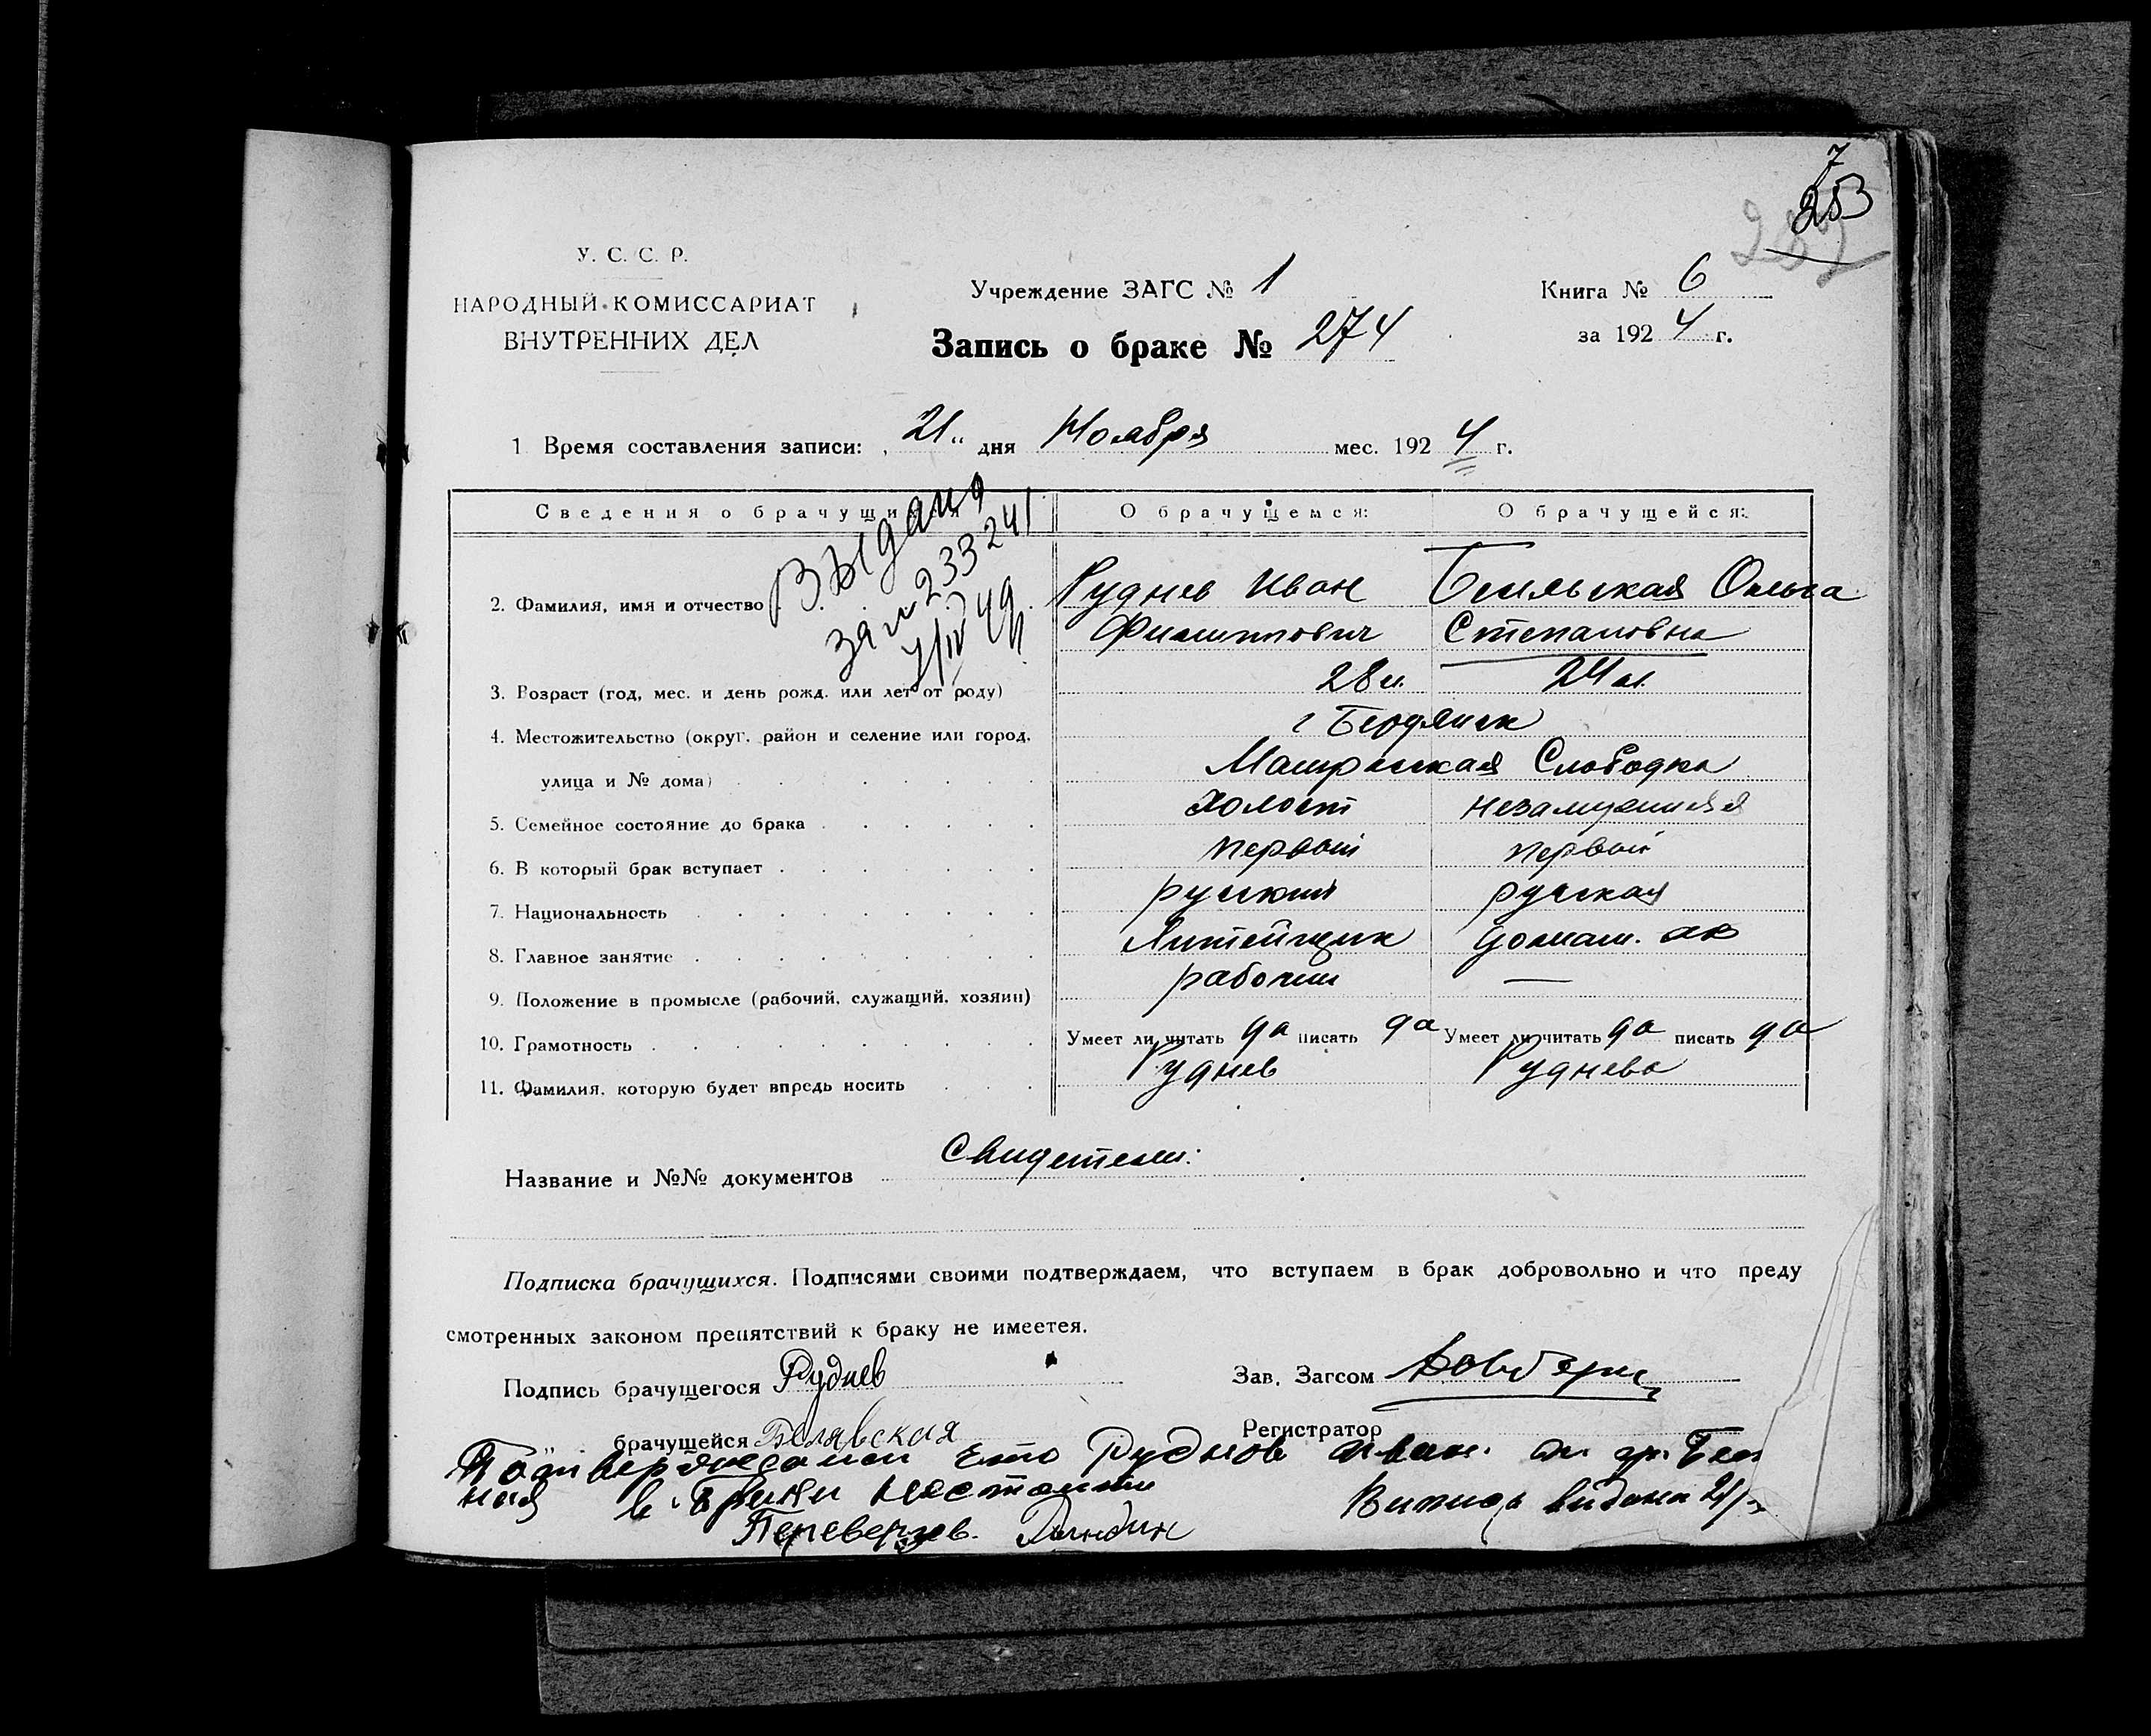 7
253
У. С. С. Р.
НАРОДНЫЙ КОМИССАРИАТ
ВНУТРЕННИХ ДЕЛ
Учреждение ЗАГС № 1
Запись о браке № 274
Книга № 6
за 1924 г.
1 Время составления записи: „21“ дня Ноября мес. 1924 г.
Сведения о брачущихся О брачущемся: О брачущейся:
Выдано
за № 233241
2. Фамилия, имя и отчество Руднев Иван Ольга
Филиппович Степановна
3. Возраст (год, мес. и день рожд. или лет от роду) 28 л. 24 л.
4. Местожительство (округ, район и селение или город, г Бердянск
улица и № дома) Слободка
5. Семейное состояние до брака холост незамужняя
6. В который брак вступает первый первый
7. Национальность русский русская
8. Главное занятие Литейщик домаш. хоз
9. Положение в промысле (рабочий, служащий, хозяин) рабочий —
10. Грамотность Умеет ли читать да писать да Умеет ли читать да писать да
11. Фамилия, которую будет впредь носить Руднев Руднева
Название и №№ документов Свидетели:
Подписка брачущихся. Подписями своими подтверждаем, что вступаем в брак добровольно и что преду
смотренных законом препятствий к браку не имеется.
Подпись брачущегося Руднев Зав. Загсом
„ брачущейся Белявская Регистратор
что Руднов
Випись видана
Переверзев.